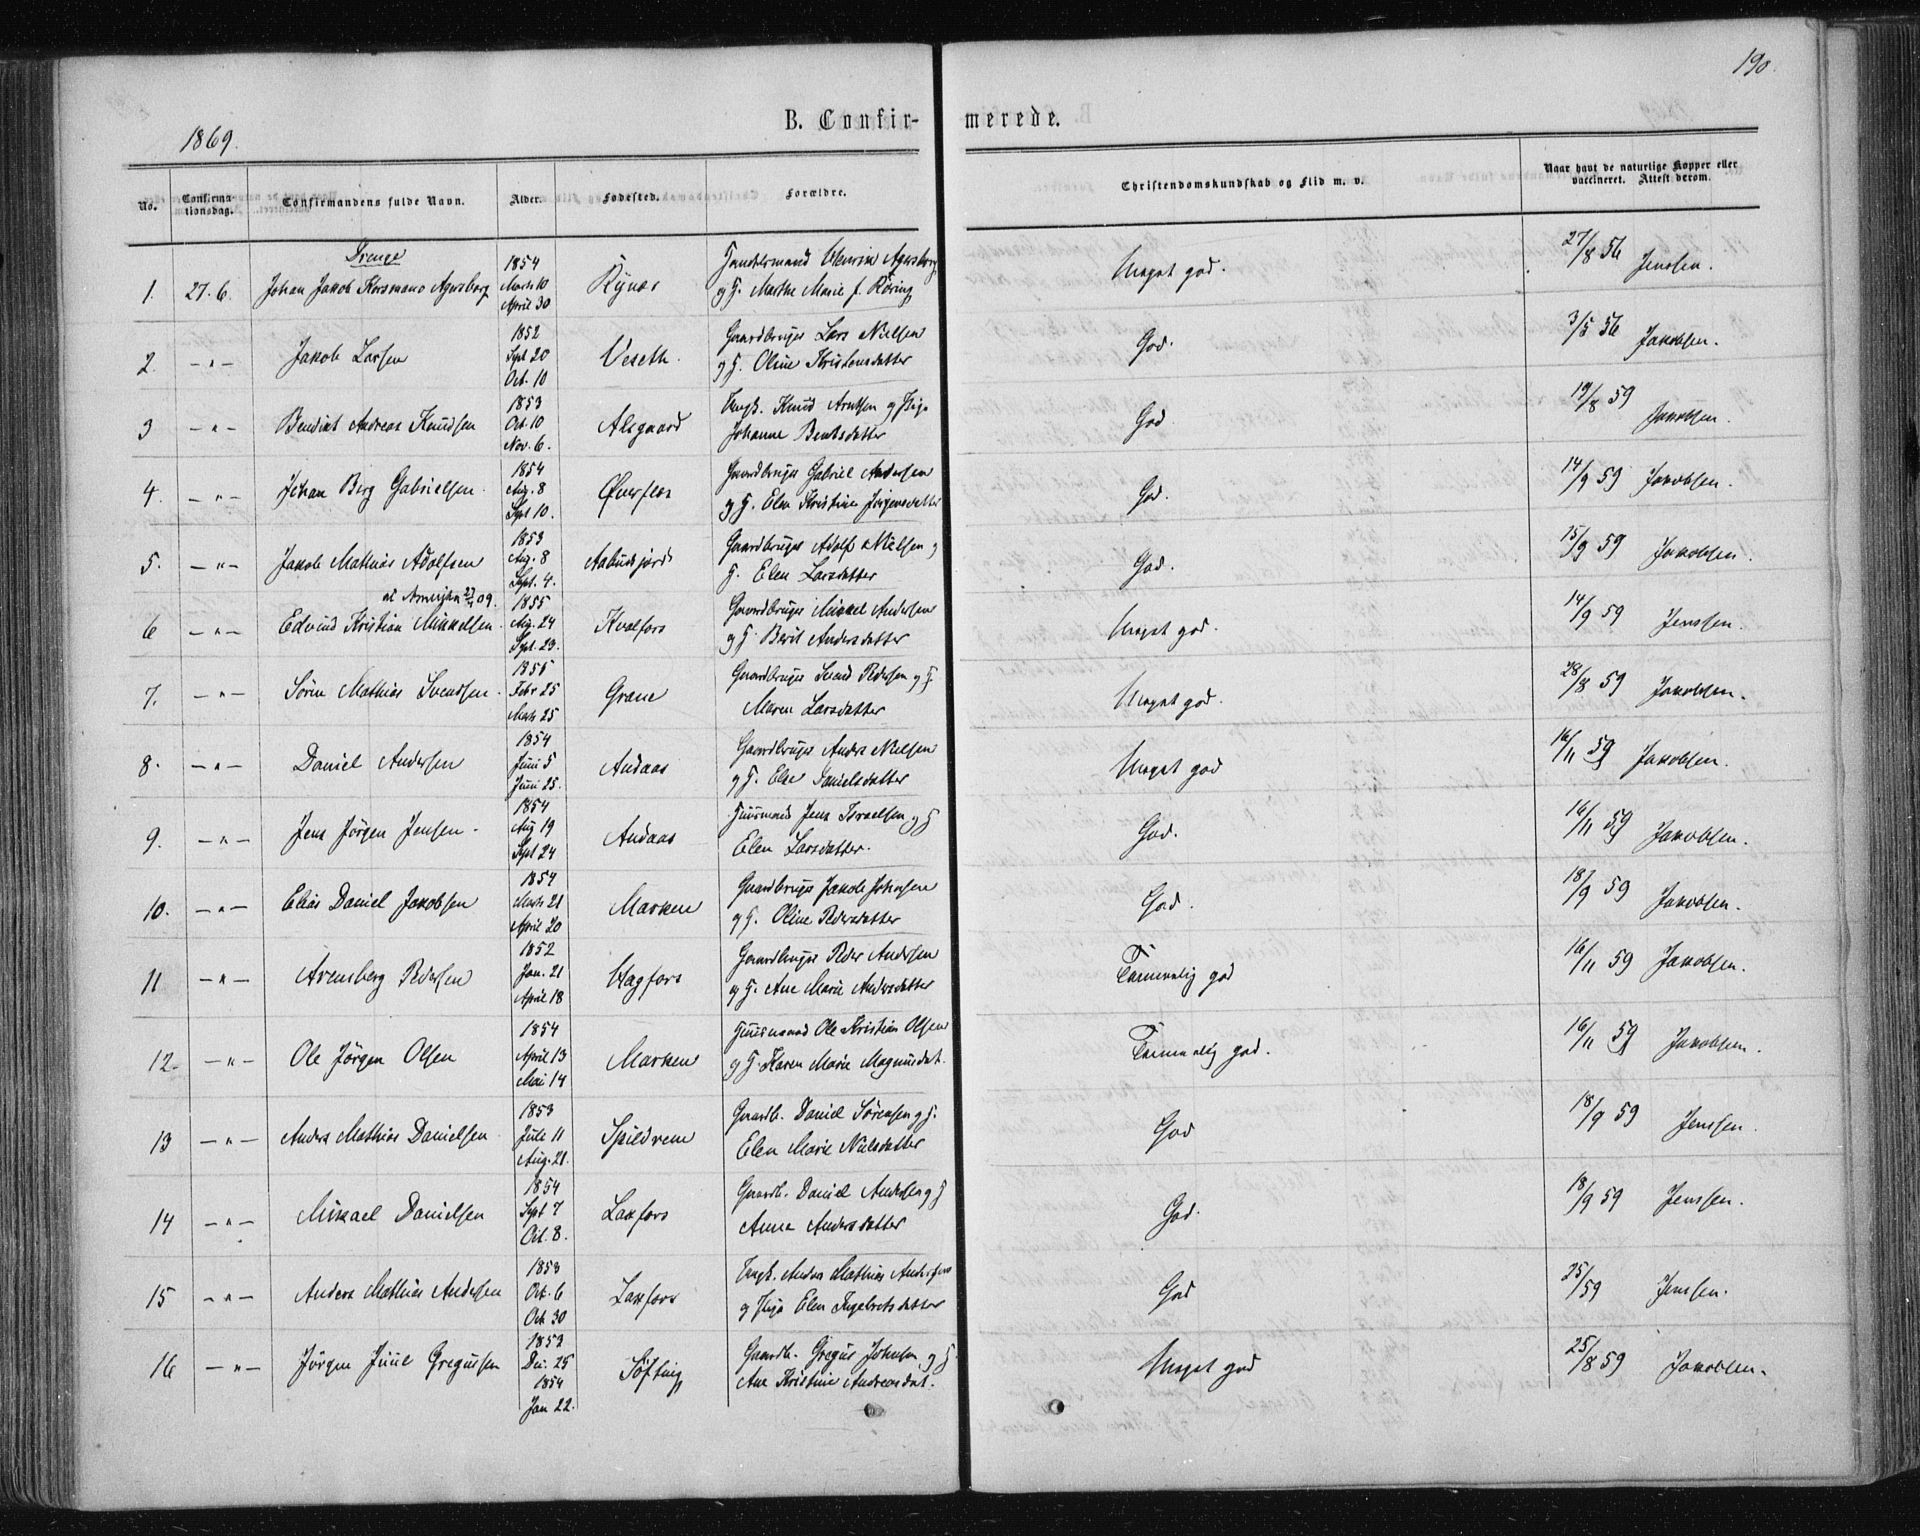 190.
B. Confirmerede.
1869.
No. Confirmationsdag. Confirmandens fulde Navn. Alder. Fødested. Forældre. Christendomskundskab og Flid m. v. Naar havt de naturlige Kopper eller vaccineret. Attest derom.
Drenge
1. 27.6. Johan Jakob Korsmann Agersborg 1854 Marts 10 April 30 Rynes Handelsmand Henrik Agersborg og H. Marthe Marie f. Røring Meget god. 27/8 56 Jenssen.
2. -"- Jakob Larsen 1852 Sept 20 Oct. 10 Veseth. Gaardbruger Lars Nielsen og H. Oline Kristensdatter God. 3/5 56 Jakobsen.
3 -"- Benedikt Andreas Knudsen 1853 Oct. 10 Nov. 6. Alsgaard Ungk. Knud Arntsen og Pige Johanne Bentsdatter God 19/8 59 Jakobsen.
4. -"- Johan Berg Gabrielsen 1854 Aug. 8 Sept 10. Øverfos Gaardbruger Gabriel Andersen og H. Elen Kristine Jørgensdatter God. 14/9 59 Jakobsen.
5. -"- Jakob Mathias Adolfsen 1853 Aug. 8 Sept. 4. Aabudsjord Gaardbruger Adolf Nielsen og H. Elen Larsdatter God. 15/9 59 Jakobsen.
at Amerika 09.
6 -"- Edvind Kristian Mikkelsen 1855 Aug. 24 Sept. 23. Kvalfors Gaardbruger Mikkel Andersen og H. Berit Andersdatter Meget god. 14/9 59 Jenssen.
7. -"- Søren Mathias Svendsen 1855 Febr 25 Marts 25 Grane Gaardbruger Svend Pedersen og H. Maren Larsdatter Meget god. 28/8 59 Jakobsen.
8. -"- Daniel Andersen 1854 Juni 5 Juni 25. Andaas Gaardbruger Anders Nielsen og H. Else Danielsdatter Meget god 16/11 59 Jakobsen.
9. -"- Jens Jørgen Jensen 1854 Aug 19 Sept 24 Andaas Huusmand Jens Israelsen og H Elen Larsdatter. God. 16/11 59 Jakobsen.
10. -"- Elias Daniel Jakobsen 1854 Marts 21 April 20 Marken Gaardbruger Jakob Johnsen og H. Oline Pedersdatter God. 18/9 59 Jakobsen.
11 -"- Arensberg Pedersen 1852 Jan. 21 April 18 Hagfors Gaardbruger Peder Andersen og H. Ane Marie Andersdatter Temmelig god 16/11 59 Jakobsen.
12. -"- Ole Jørgen Olsen 1854 April 13 Mai 14 Marken Huusmand Ole Kristian Olsen og H. Karen Marie Magnusdat. Temmelig god. 16/11 59 Jakobsen.
13 -"- Anders Mathias Danielsen 1853 Juli 11 Aug. 21. Spildrem Gaardb. Daniel Sørensen og H. Elen Marie Nielsdatter God 18/9 59 Jenssen.
14 -"- Mikael Danielsen 1854 Sept 7 Oct. 8. Laxfors Gaardb. Daniel Andersen og H Anna Andersdatter God. 18/9 59 Jenssen.
15 -"- Anders Mathias Andersen 1853 Oct. 6 Oct. 30 Laxfors Ungk. Anders Mathias Andersen og Pige Elen Ingebretsdatter God 25/59 Jenssen.
16 -"- Jørgen Juul Gregussen 1853 Dec. 25 1854 Jan 22. Søfting Gaardb. Gregus Johnsen og H. Ane Kristine Andreasdat. Meget god 25/8 59 Jakobsen.